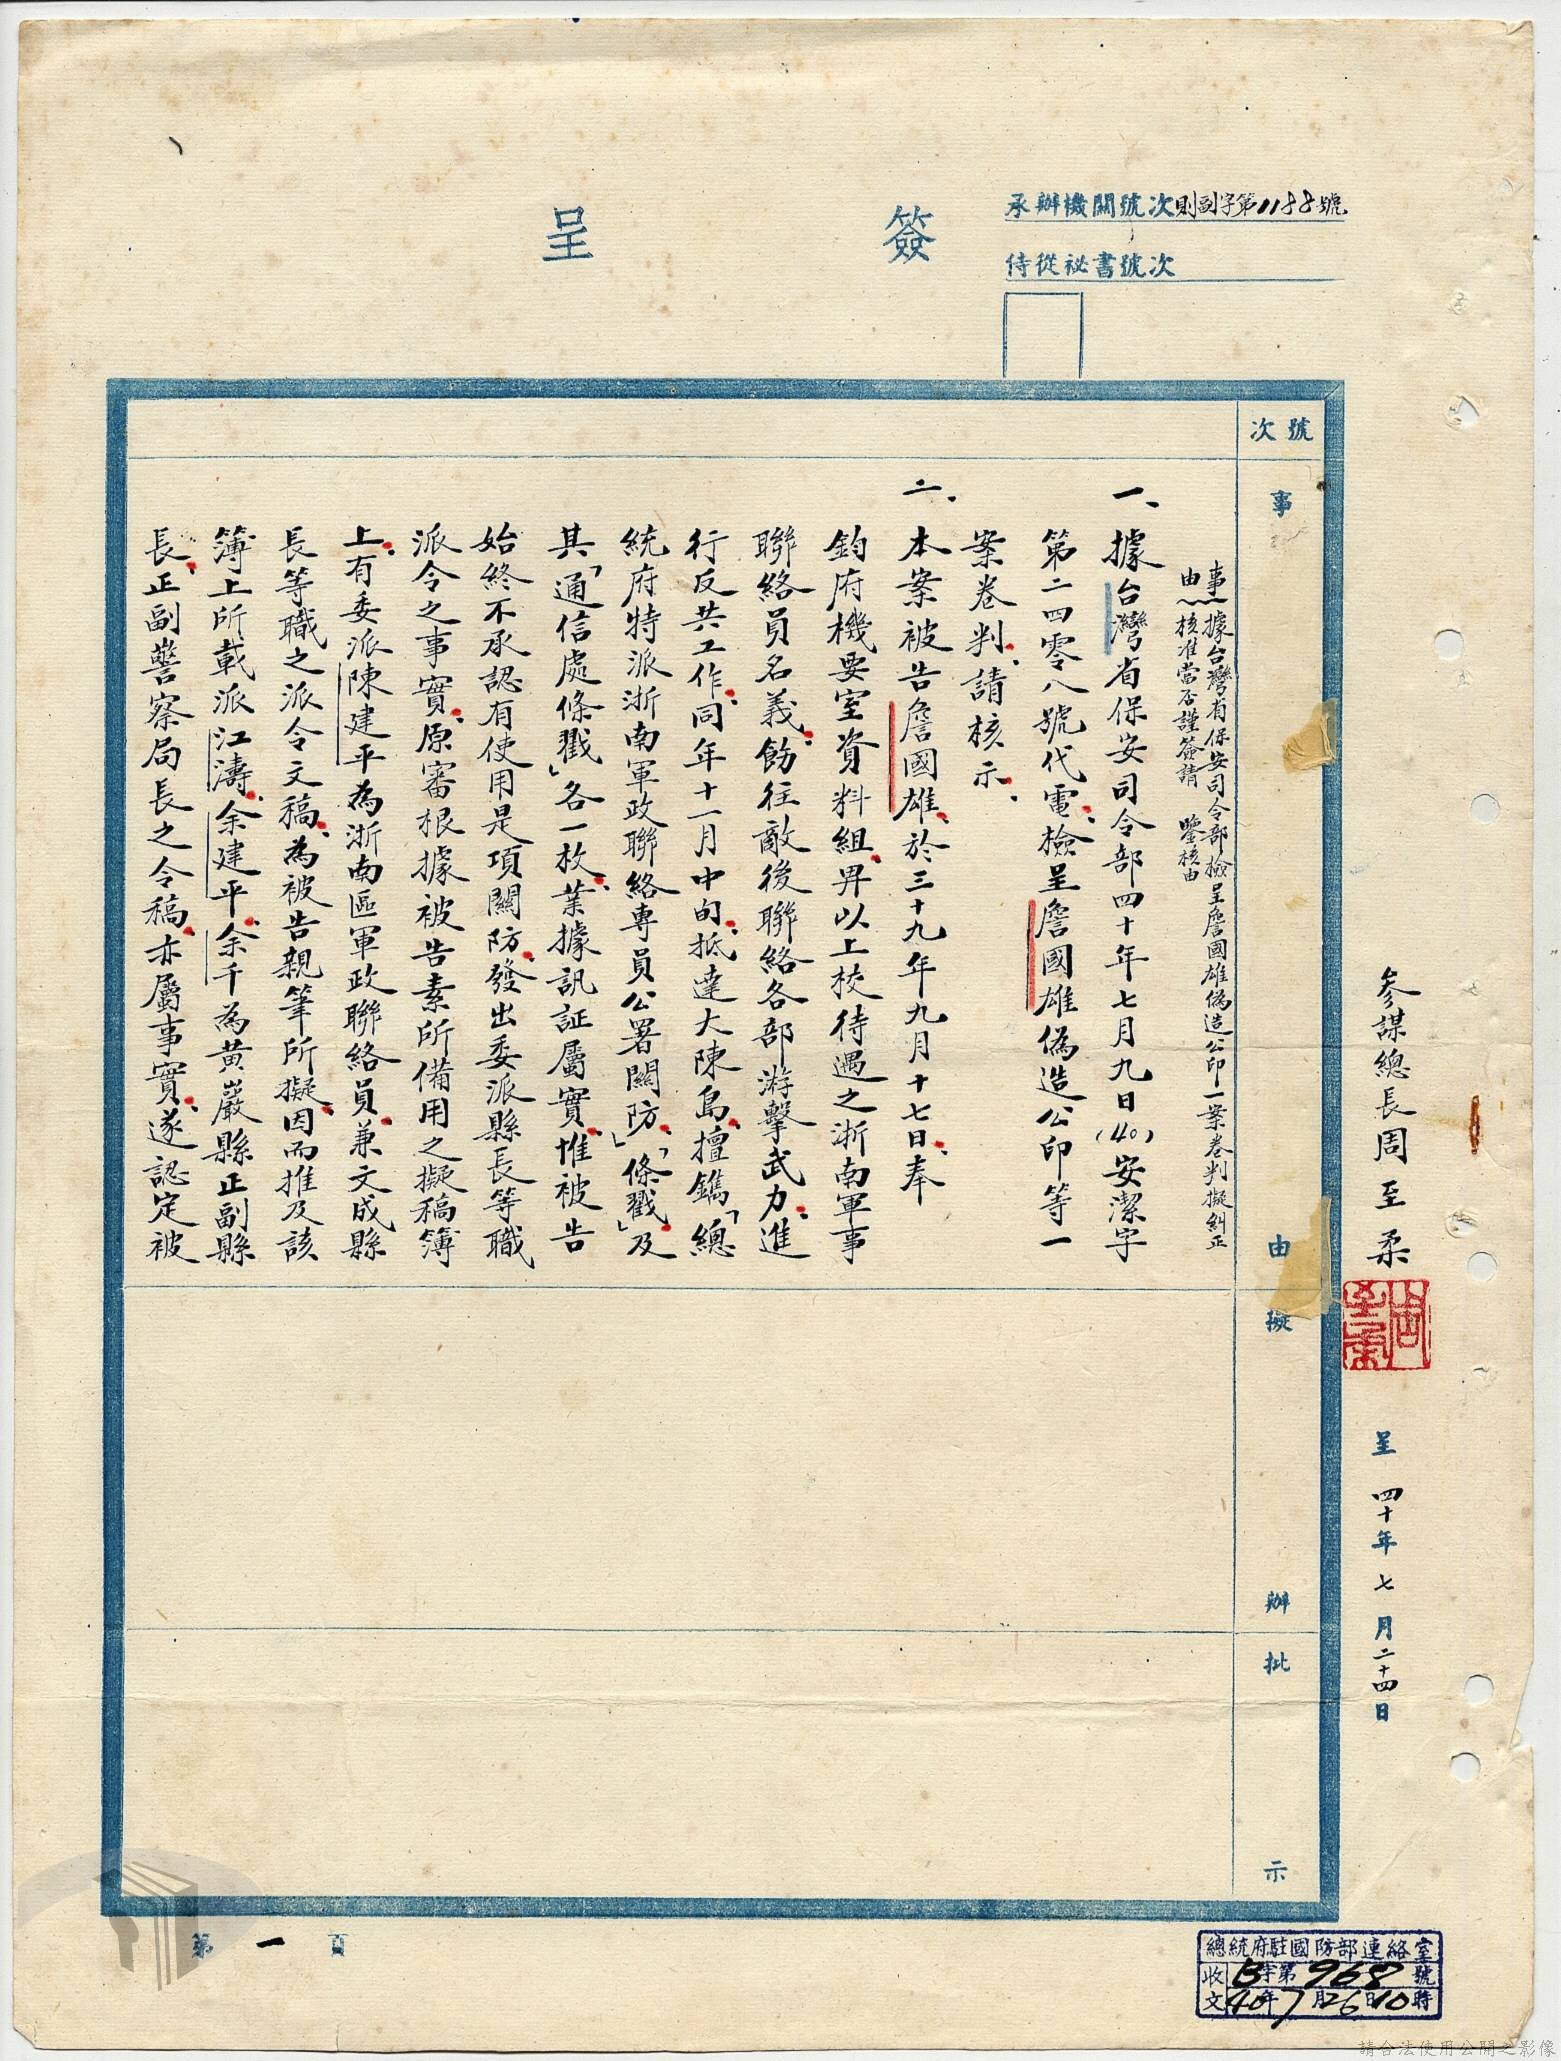 簽呈
承辦機關號次則副字第1188號
侍從祕書號次
參謀總長周至柔
周至柔
呈 四十年七月二十四日
號次
事由
擬辦
批示
事由：據台灣省保安司令部檢呈詹國雄偽造公印一案卷判擬糾正
核准當否謹簽請 鑒核由
一、據台灣省保安司令部四十年七月九日(40)安潔字
第二四零八號代電、檢呈詹國雄偽造公印等一
案卷判、請核示、
二、本案被告詹國雄、於三十九年九月十七日、奉
鈞府機要室資料組、畀以上校待遇之浙南軍事
聯絡員名義、飭往敵後聯絡各部游擊武力、進
行反共工作、同年十一月中旬、抵達大陳島、擅鐫「總
統府特派浙南軍政聯絡專員公署關防」、「條戳」、及
其「通信處條戳」各一枚、業據訊証屬實、惟被告
始終不承認有使用是項關防、發出委派縣長等職
派令之事實、原審根據被告素所備用之擬稿簿
上、有委派陳建平為浙南區軍政聯絡員、兼文成縣
長等職之派令文稿、為被告親筆所擬、因而推及該
簿上所載派江濤、余建平、余千為黃巖縣正副縣
長、正副警察局長之令稿、亦屬事實、遂認定被
第一頁
總統府駐國防部連絡室
收文 B字第968號
40年7月26日10時
請合法使用公開之影像